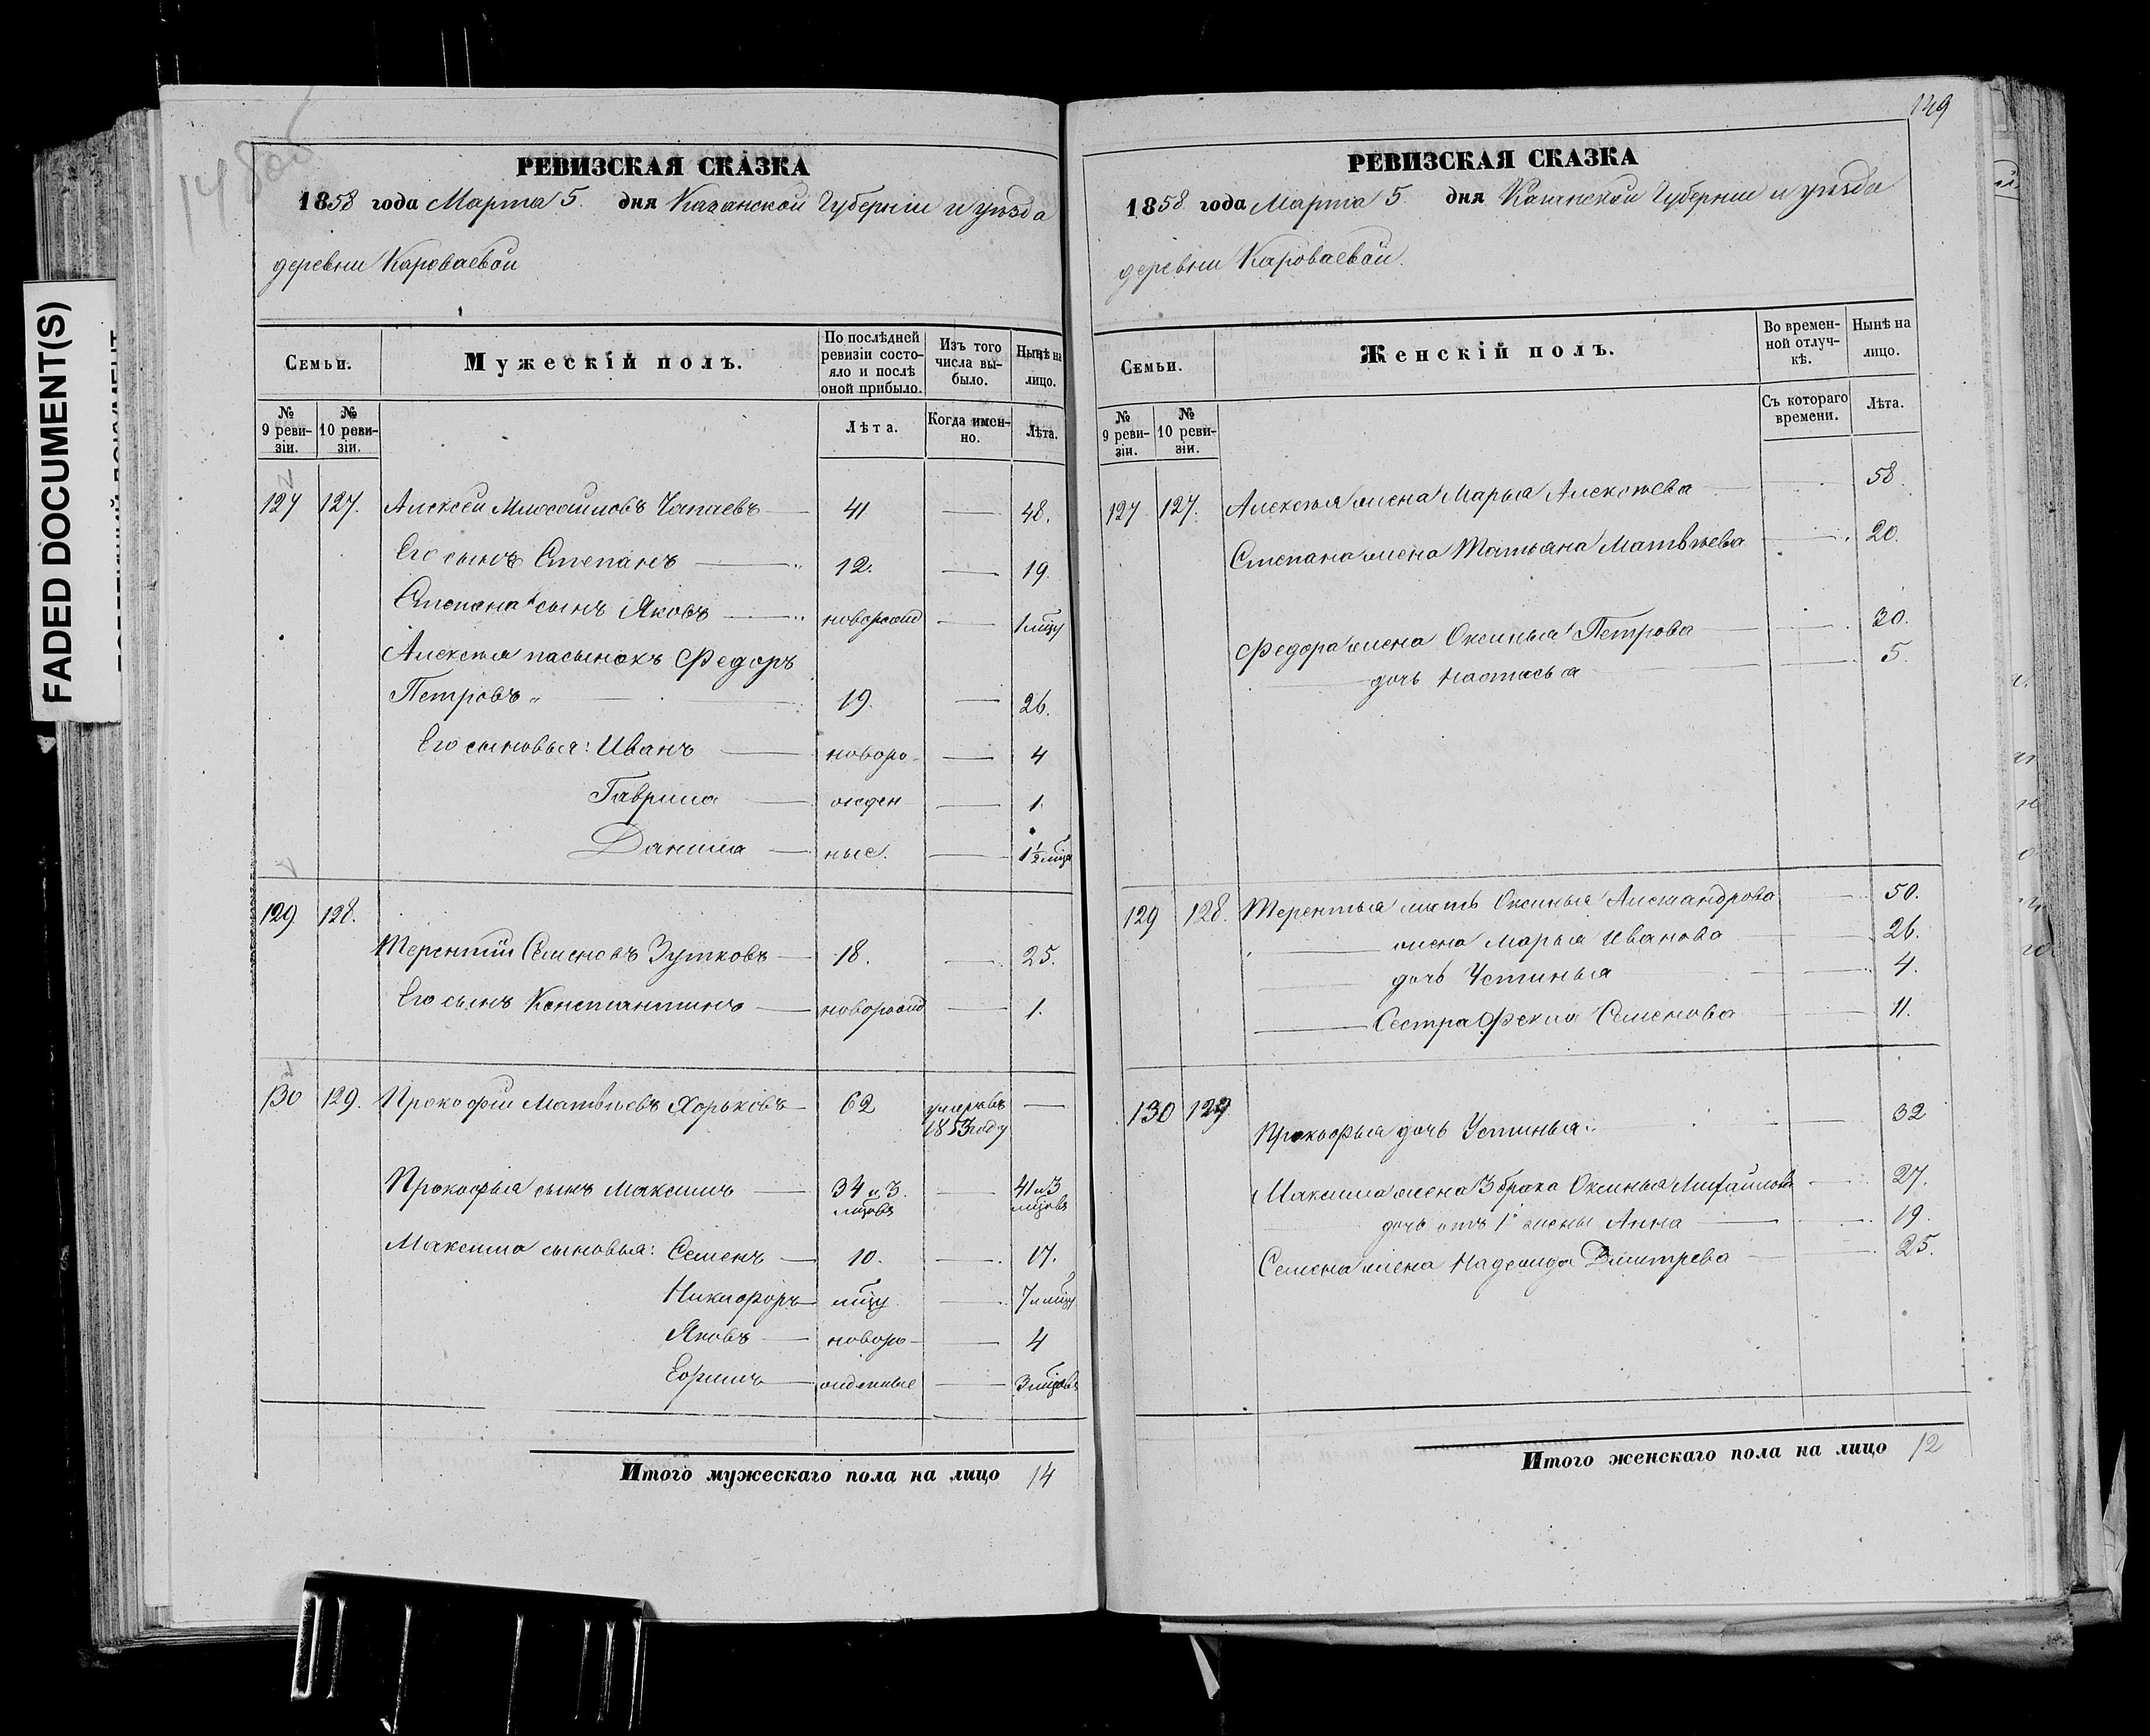 149
FADED DOCUMENT(S)
РЕВИЗСКАЯ СКАЗКА
1858 года Марта 5. дня Казанской Губерніи и уѣзда
деревни Кароваевой
Семьи.
Мужескій полъ.
По послѣдней ревизіи состояло и послѣ оной прибыло.
Изъ того числа выбыло.
Нынѣ на лицо.
№ 9 ревизіи.
№ 10 ревизіи.
Лѣта.
Когда именно.
Лѣта.
127 127. Алексей Чапаевъ 41 — 48.
Его сынъ Степанъ — 12. — 19.
Степана сынъ Яковъ — новорожд — 1 мцу
Алексея пасынокъ Федоръ
Петровъ — 19. — 26.
Его сыновья: Иванъ — новоро- — 4
Гаврила — жден — 1.
Данила — ные. — 1½ мца
129 128.
Терентий Семеновъ Зутковъ — 18. — 25.
Его сынъ Константинъ — новорожд — 1.
130 129. Прокофій Матвѣевъ Хорьковъ — 62 умеръ въ 1853 году —
Прокофья сынъ Максимъ — 34 и 3. мцовъ — 41 и 3 мцовъ
Максима сыновья: Семенъ — 10. — 17.
Никифоръ — мцу — 7 и мцу
Яковъ — новоро- — 4
Ефимъ — жденные — 3 мцовъ
Итого мужескаго пола на лицо 14
РЕВИЗСКАЯ СКАЗКА
1858 года Марта 5. дня Казанской Губерніи и уѣзда
деревни Кароваевой.
Семьи.
Женскій полъ.
Во временной отлучкѣ.
Нынѣ на лицо.
№ 9 ревизіи.
№ 10 ревизіи.
Съ котораго времени.
Лѣта.
127 127. Алексея жена Марья Алексѣева — 58.
Степана жена Татьяна Матвѣева — 20.
Федора жена Оксинья Петрова — 30.
— дочь Настасья — 5.
129 128. Терентья мать Оксинья Александрова — 50.
— жена Марья Иванова — 26.
— дочь Устинья — 4.
— Сестра Фекла Семенова — 11.
130 129 Прокофья дочь Устинья — 32
Максима жена 3 брака Оксинья Михайлова — 27.
— дочь отъ 1й жены Анна — 19.
Семена жена Надежда Дмитрева — 25.
Итого женскаго пола на лицо 12